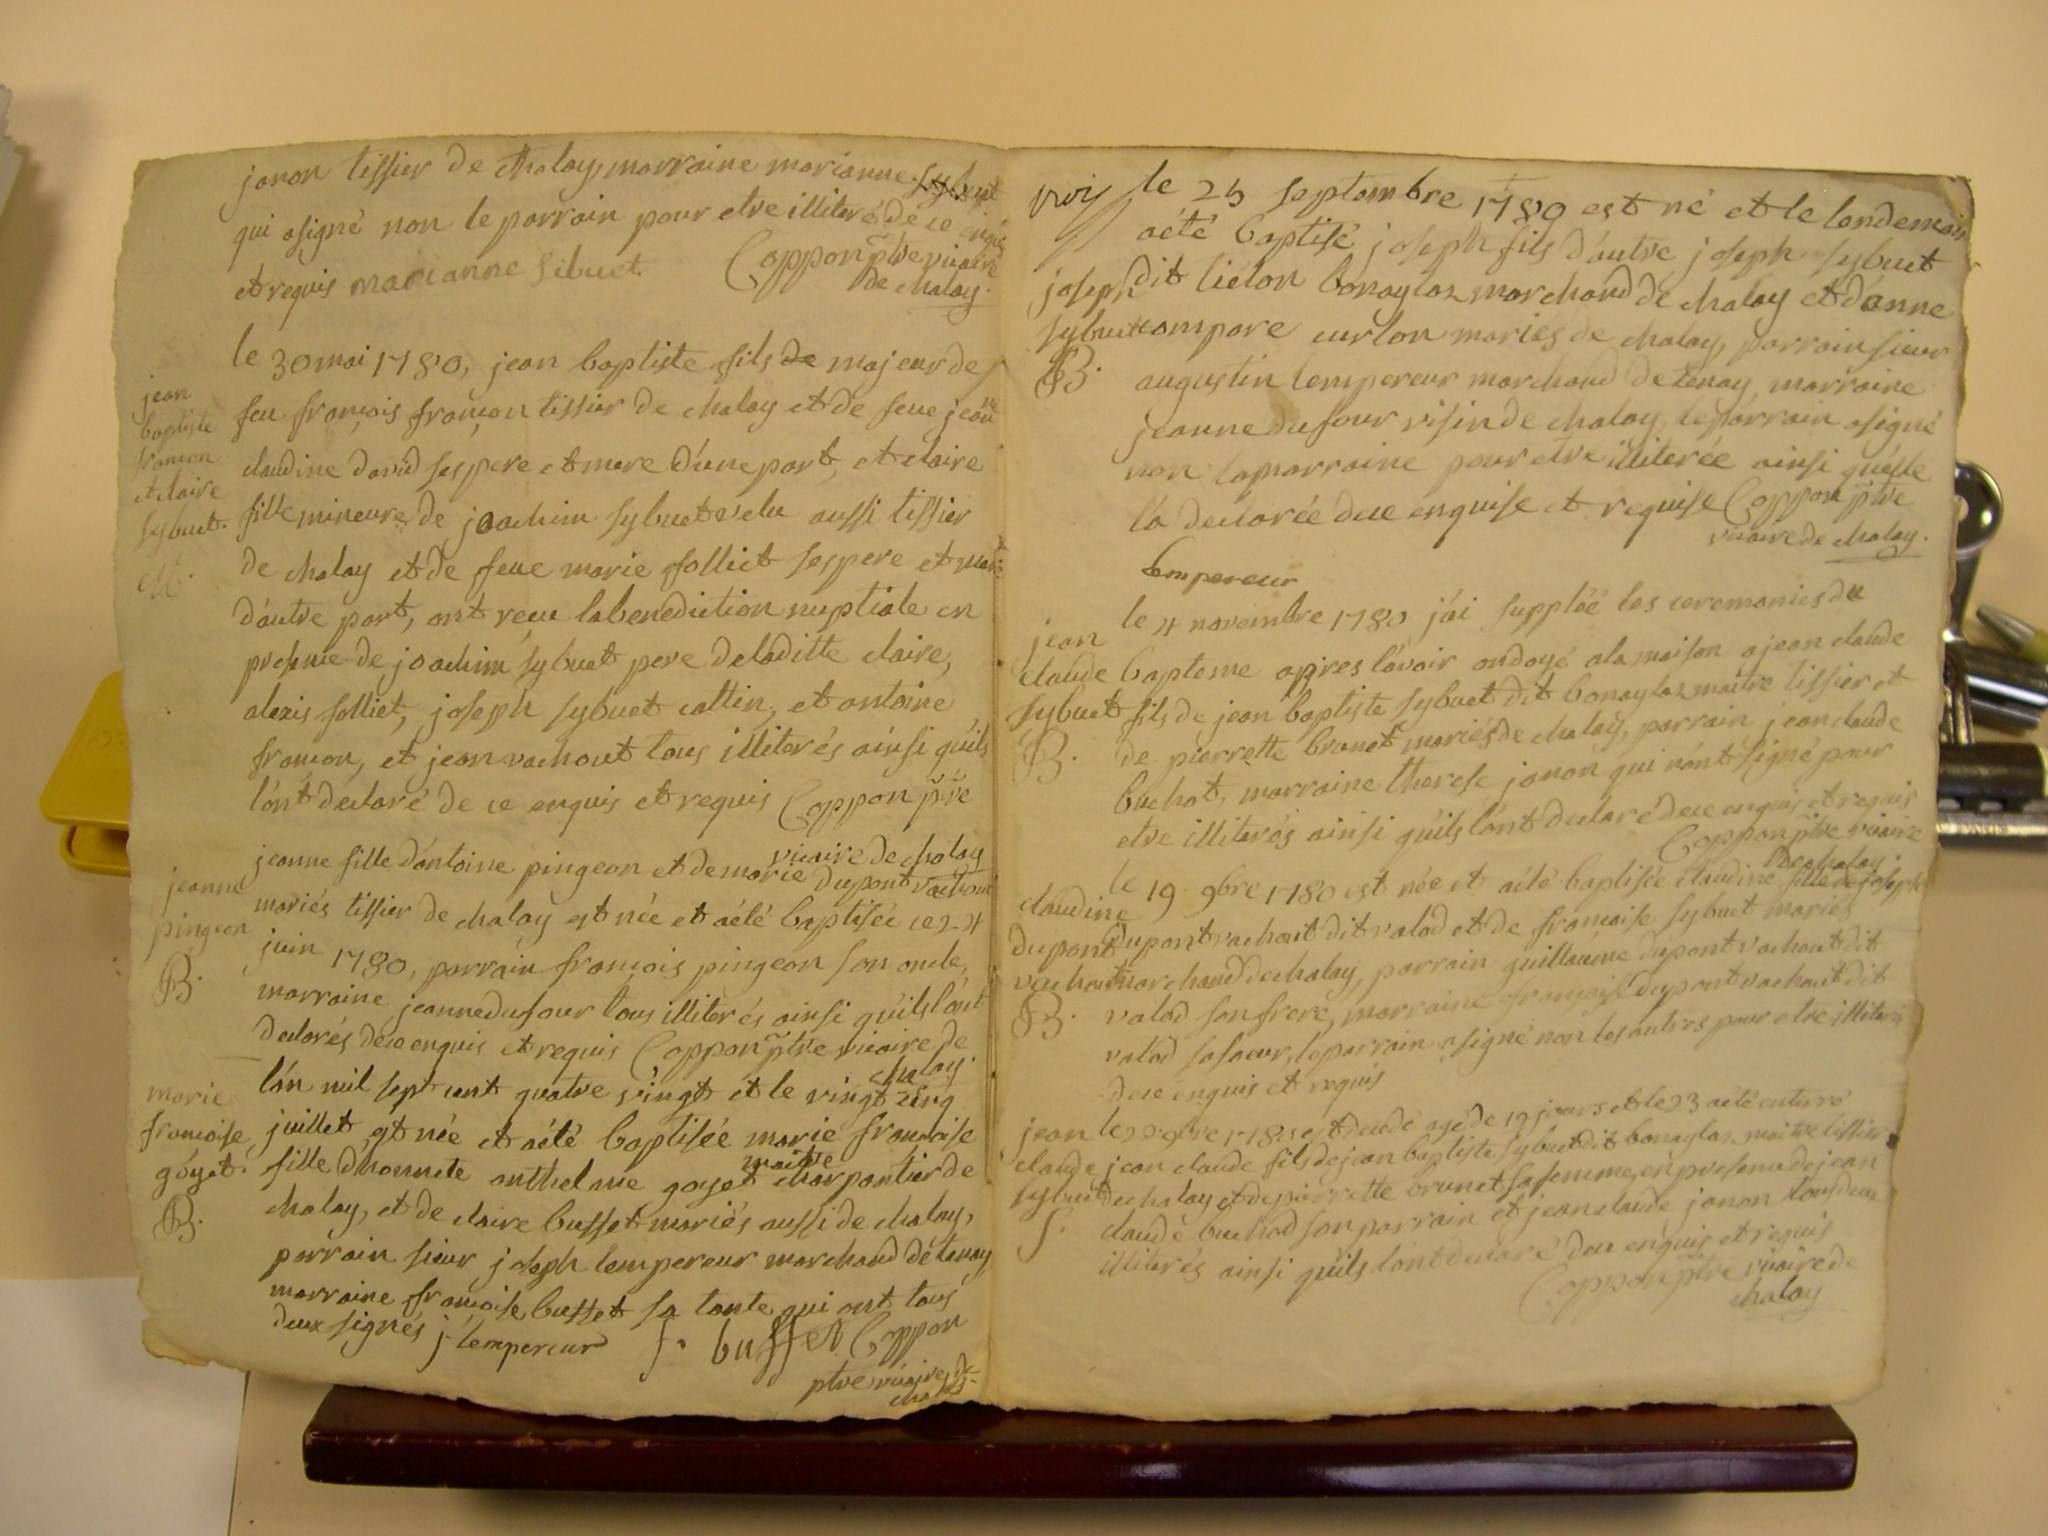 janon tissier de chaley, marraine marianne sybuet
qui asigné non le parrain pour etre illiteré de ce enquis
et requis marianne sibuet Coppon ptre vicaire
de chaley.
le 30 mai 1780, jean baptiste fils de majeur de
feu françois françon tissier de chaley et de feue jeanne
claudine david ses pere et mere d'une part, et claire
fille mineure de joachim sybuet velu aussi tissier
de chaley et de feue marie solliet ses pere et mere
d'autre part, ont reçu la benediction nuptiale en
presence de joachim sybuet pere de laditte claire,
alexis solliet, joseph sybuet cattin, et antoine
françon, et jean vachout tous illiterés ainsi qu'ils
l'ont declaré de ce enquis et requis Coppon ptre
vicaire de chaley
jean
baptiste
françon
et claire
sybuet.
M.
jeanne fille d'antoine pingeon et de marie dupont vachout
mariés tissier de chaley est née et aété baptisée ce 24
juin 1780, parrain françois pingeon son oncle,
marraine jeanne dufour tous illiterés ainsi qu'ils l'ont
declarés de ce enquis et requis Coppon ptre vicaire de
chaley.
jeanne
pingeon
B.
l'an mil sept cent quatre vingt et le vingt cinq
juillet est née et aété baptisée marie françoise
fille d'honnete anthelme goyet maitre charpantier de
chaley, et de claire buffet mariés aussi de chaley,
parrain sieur joseph lempereur marchand de tenay
marraine françoise buffet sa tante qui ont tous
deux signés j. lempereur f. buffet Coppon
ptre vicaire de
chaley.
marie
françoise
goyet.
B.
le 25 septembre 1780 est né et le landemain
aété baptisé joseph fils d'autre joseph sybuet
dit liélon bonaylaz marchand de chaley et d'anne
compare curlon mariés de chaley, parrain sieur
augustin lempereur marchand de tenay, marraine
jeanne dufour visin de chaley, le parrain asigné
non la marraine pour etre illiterée ainsi qu'elle
l'a declarée de ce enquise et requise Coppon ptre
vicaire de chaley.
lempereur
joseph
sybuet
B.
le 4 novembre 1780 j'ai supplée les ceremonies du
bapteme apres l'avoir ondoyé ala maison a jean claude
fils de jean baptiste sybuet dit bonaylaz maitre tissier et
de pierrette brunet mariés de chaley, parrain jean claude
buchot, marraine therese janon qui n'ont signé pour
etre illiterés ainsi qu'ils l'ont declaré de ce enquis et requis
Coppon ptre vicaire
de chaley.
jean
claude
sybuet
B.
le 19 9bre 1780 est née et aété baptisée claudine fille de joseph
dupont vachout dit valod et de françoise sybuet mariés
marchand de chaley, parrain guillaume dupont vachout dit
valod son frere, marraine françoise dupont vachout dit
valod sa soeur, le parrain asigné non les autres pour etre illiterés
de ce enquis et requis
claudine
dupont
vachout
B.
le 22 9bre 1780 est decedé agé de 19 jours et le 23 aété enterré
jean claude fils de jean baptiste sybuet dit bonaylaz maitre tissier
de chaley et de pierrette brunet sa femme, en presence de jean
claude buchod son parrain et jean claude janon tous deux
illiterés ainsi qu'ils l'ont declaré de ce enquis et requis
Coppon ptre vicaire de
chaley
jean
claude
sybuet
S.